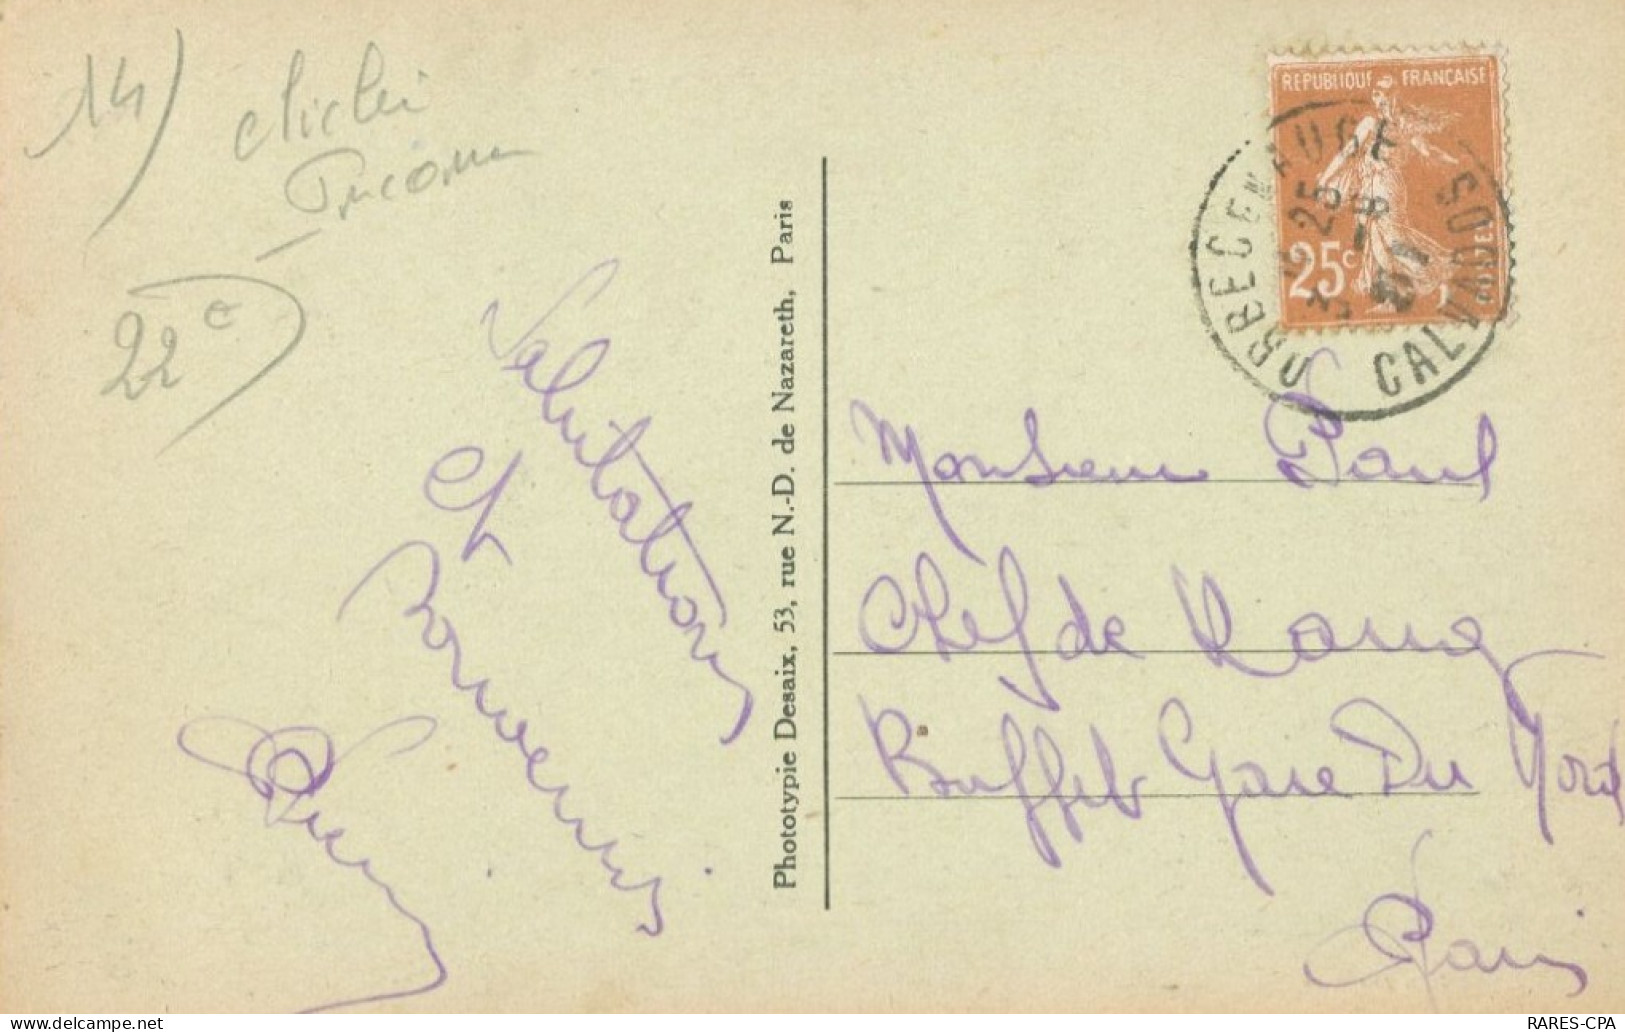 14)
cliché
22 €
Salutations
et
Souvenirs
Phototypie Desaix, 53, rue N.-D. de Nazareth, Paris
REPUBLIQUE FRANÇAISE
25c
ORBEC EN AUGE
CALVADOS
Monsieur Paul
Chef de Rang
Buffet Gare Du Nord
Paris
RARES-CPA